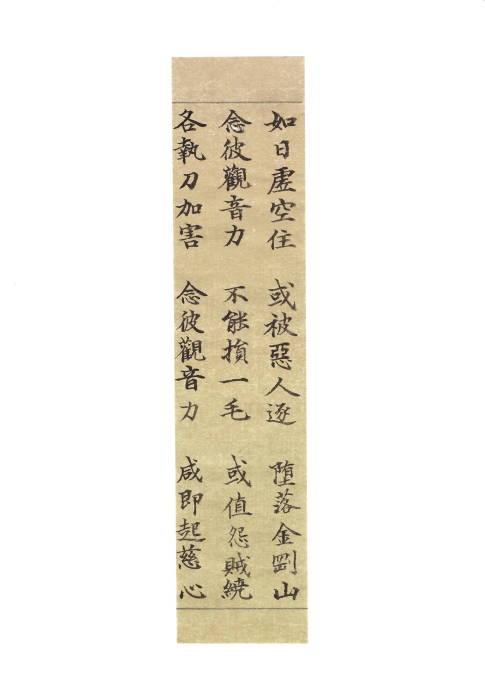 如日虛空住 或被惡人逐 墮落金剛山
念彼觀音力 不能損一毛 或值怨賊繞
各執刀加害 念彼觀音力 咸即起慈心